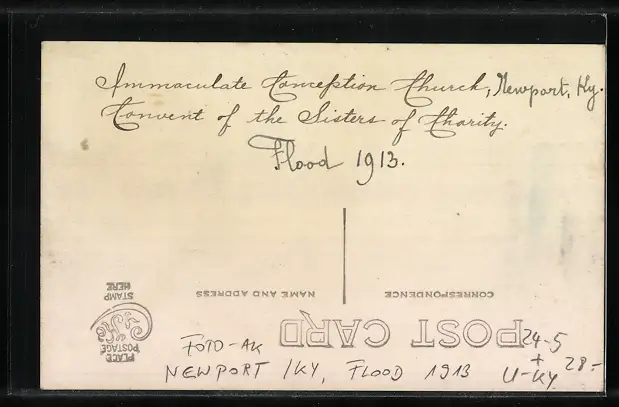 Immaculate Conception Church, Newport, Ky.
Convent of the Sisters of Charity.
Flood 1913.
CORRESPONDENCE
NAME AND ADDRESS
PLACE
POSTAGE
STAMP
HERE
POST CARD
FOTO-AK
NEWPORT /KY, FLOOD 1913
24-5
+
U-KY
28-